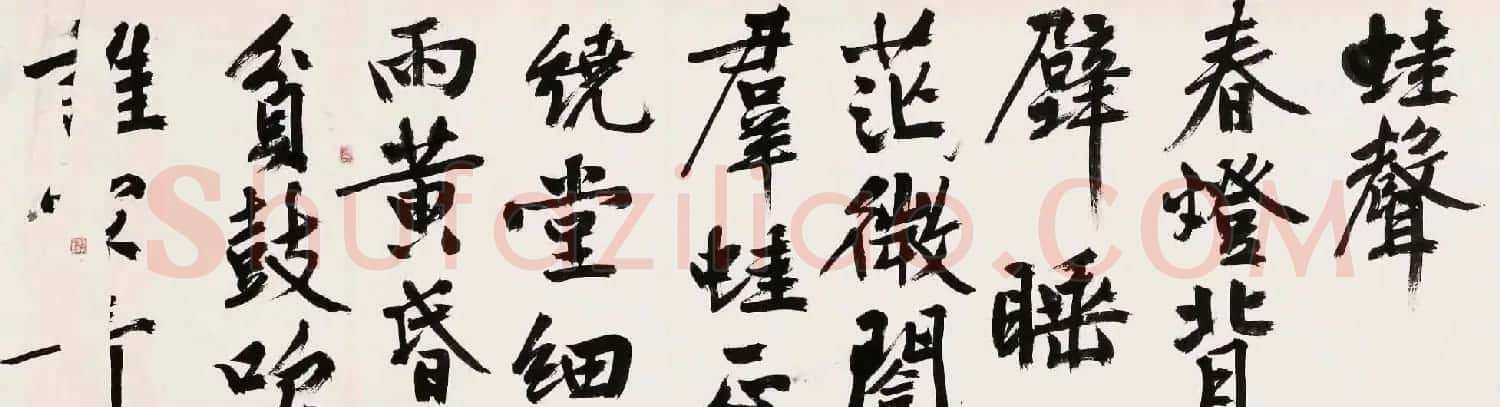 蛙聲
春燈背
壁睡
茫微
群蛙正
繞堂細
雨黃昏
貧鼓吹
誰
shufaziliao.com